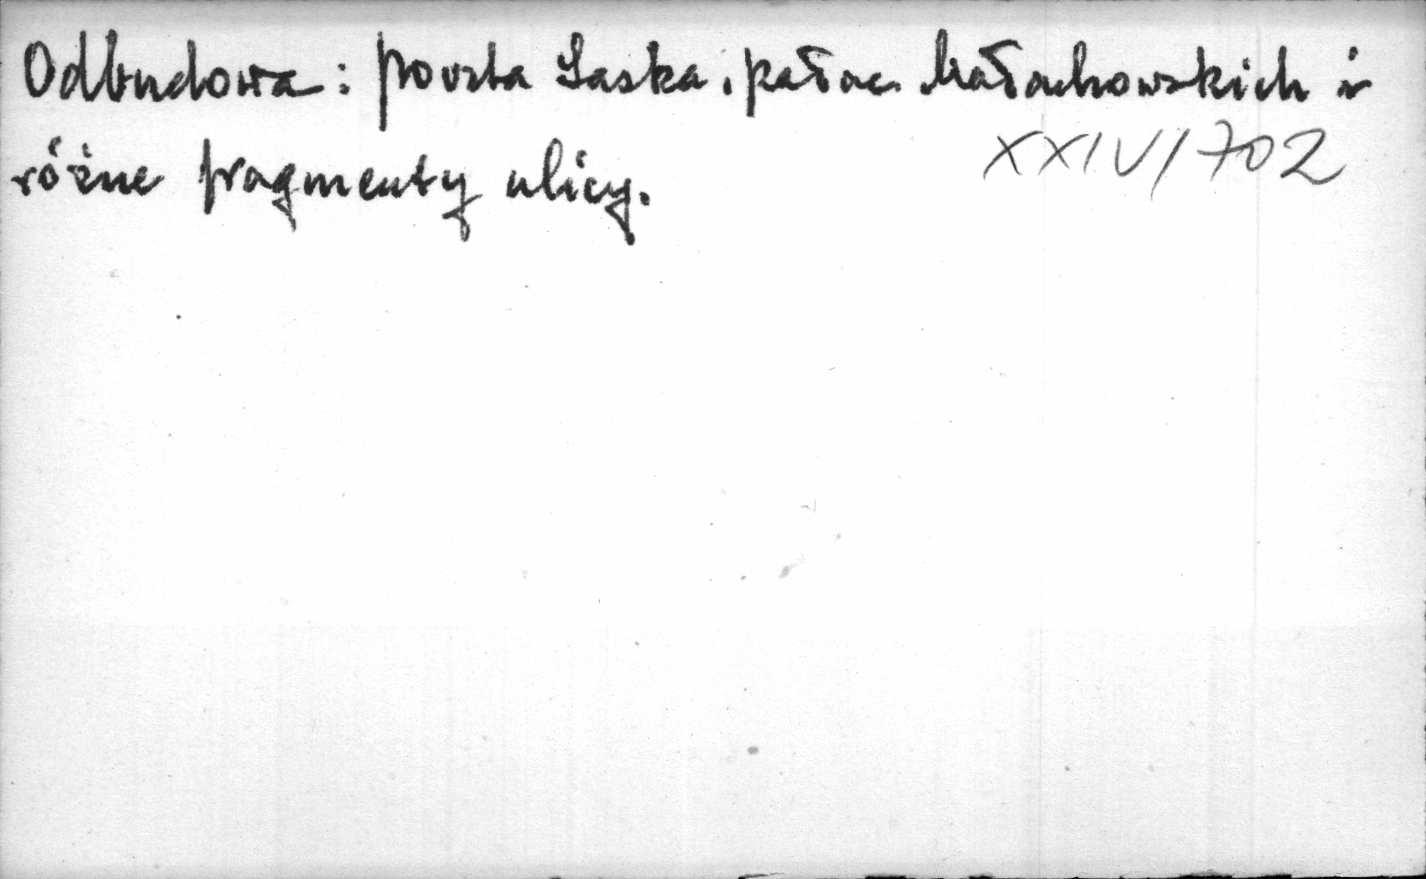 Odbudowa: poczta Saska, pałac Małachowskich i
różne fragmenty ulicy.
XXIV/702